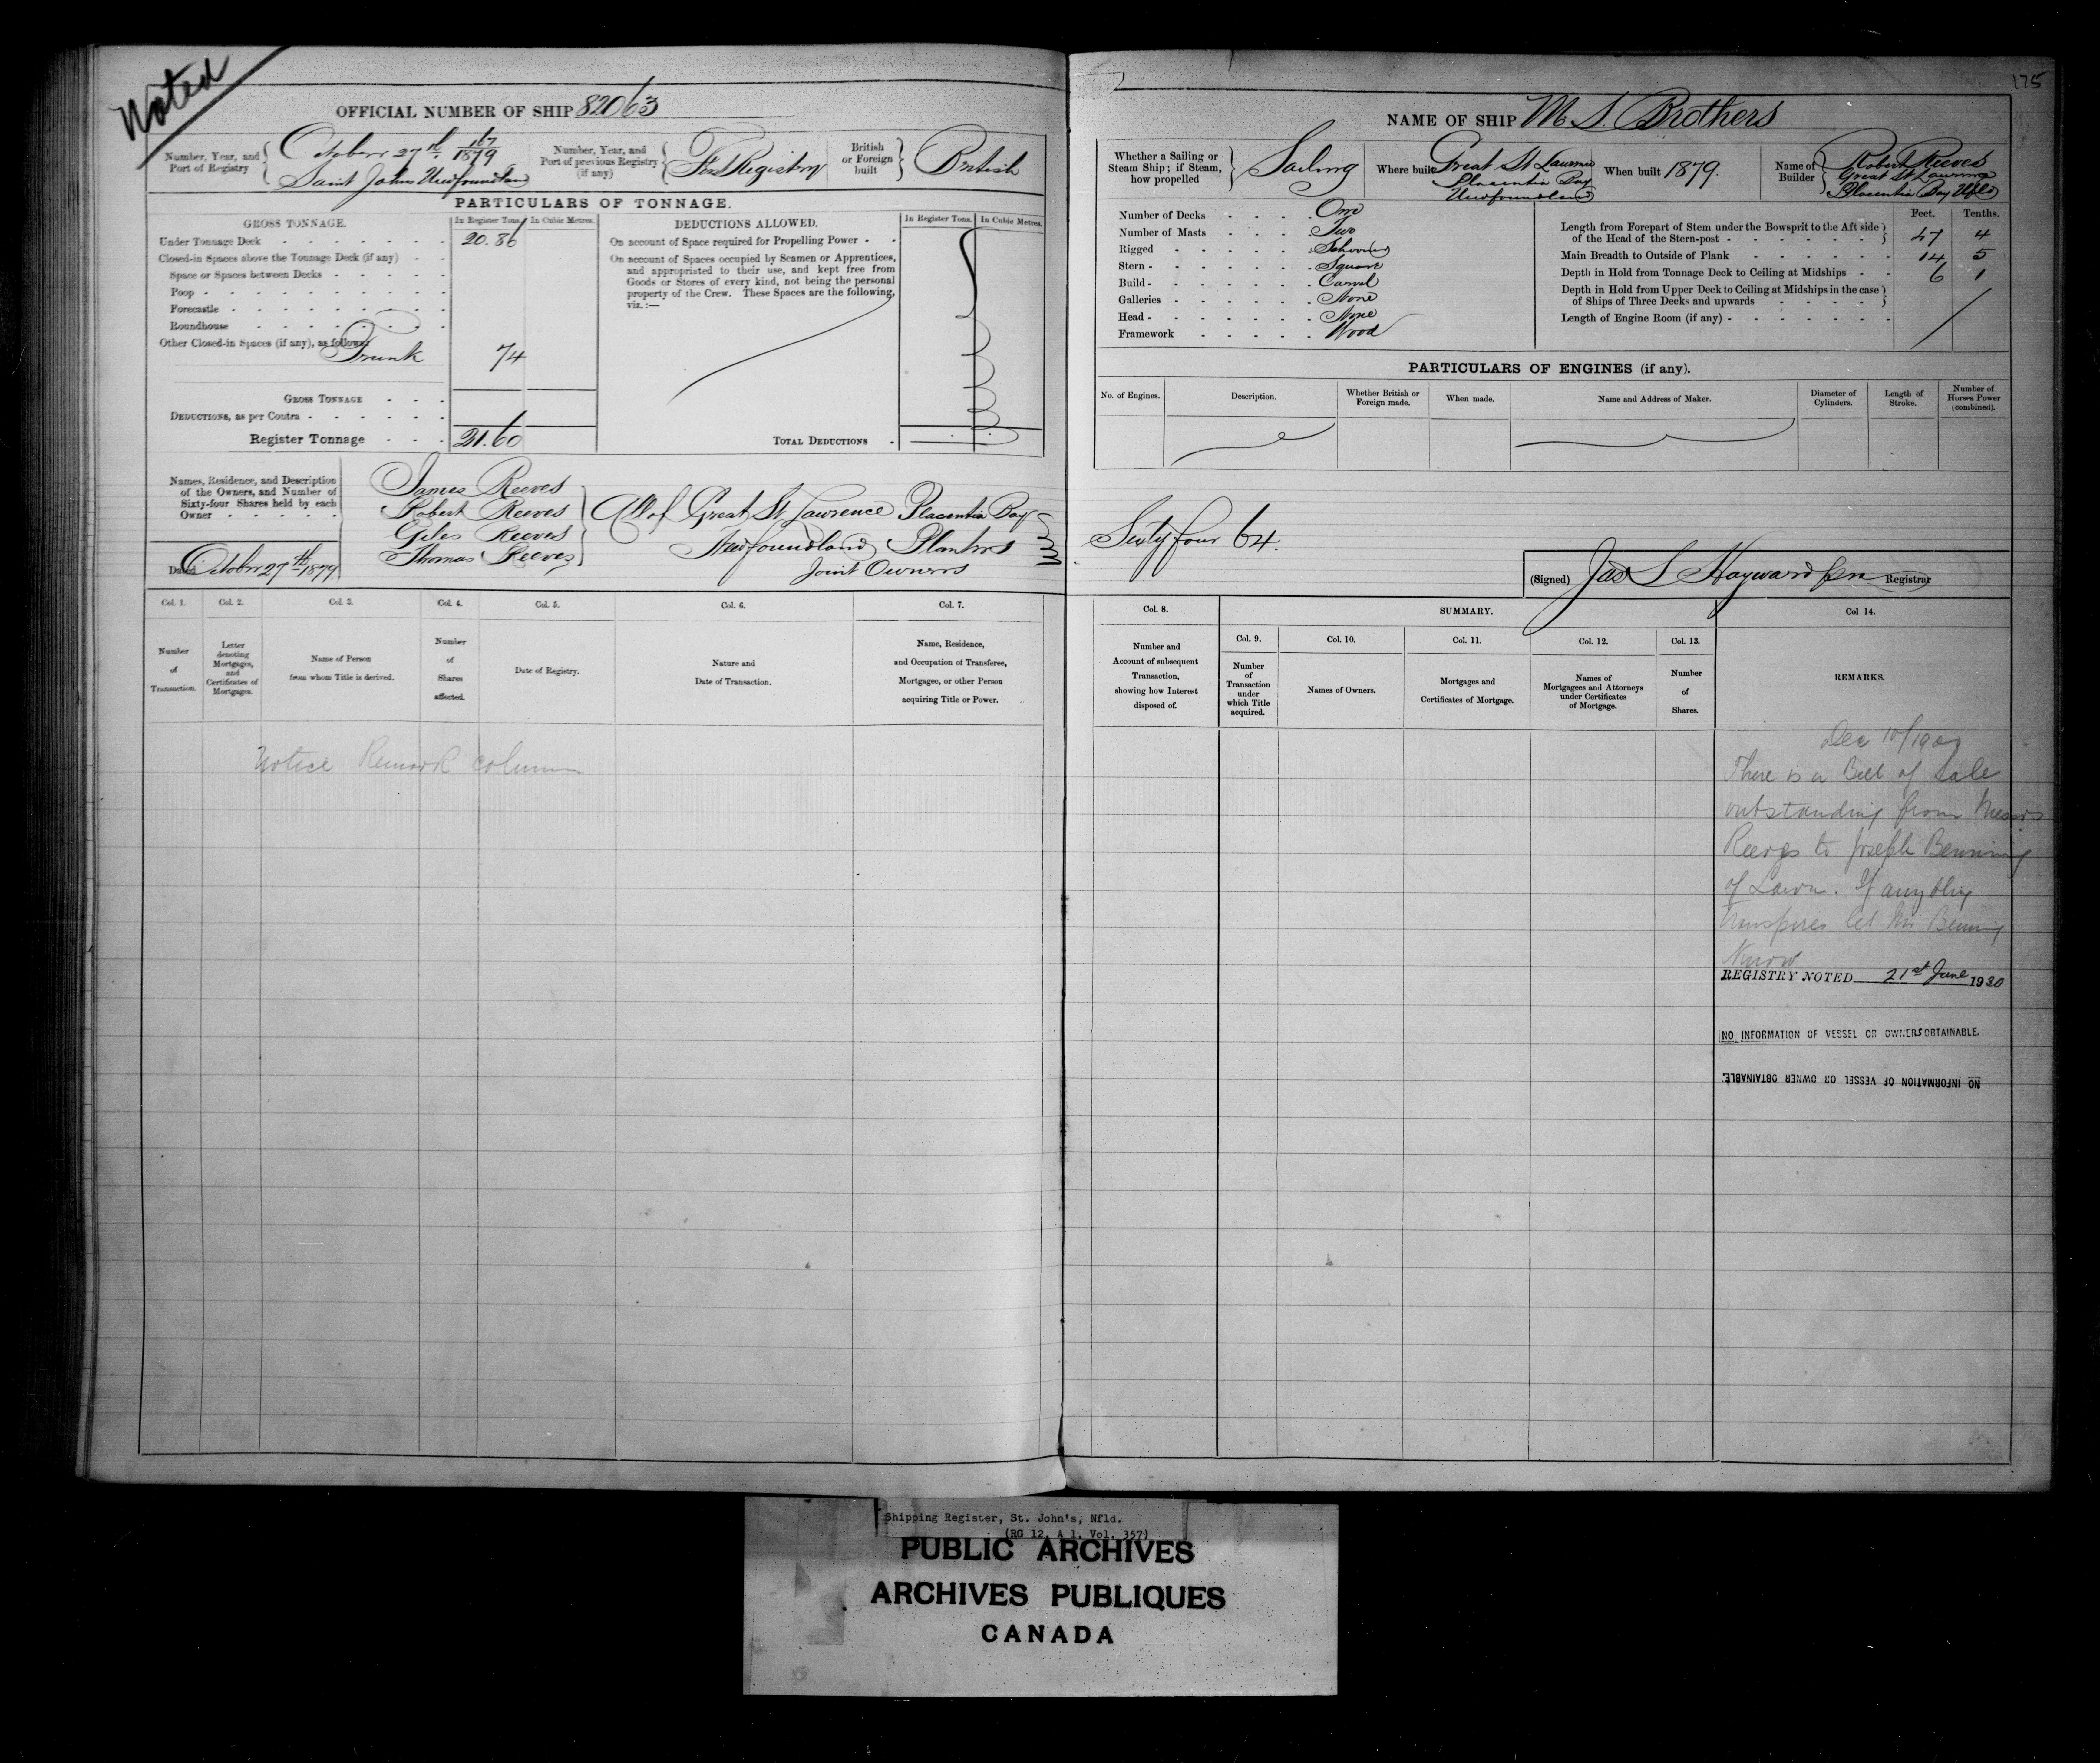 Noted
OFFICIAL NUMBER OF SHIP 82063
Number, Year, and Port of Registry
October 27th 167/1879
Saint Johns Newfoundland
Number, Year, and Port of previous Registry (if any)
First Registry
British or Foreign built
British
PARTICULARS OF TONNAGE.
GROSS TONNAGE.
In Register Tons.
In Cubic Metres.
Under Tonnage Deck 20.86
Closed-in Spaces above the Tonnage Deck (if any)
Space or Spaces between Decks
Poop
Forecastle
Roundhouse
Other Closed-in Spaces (if any), as follows
Trunk 74
GROSS TONNAGE
DEDUCTIONS, as per Contra
Register Tonnage 21.60
DEDUCTIONS ALLOWED.
In Register Tons.
In Cubic Metres.
On account of Space required for Propelling Power
On account of Spaces occupied by Seamen or Apprentices,
and appropriated to their use, and kept free from
Goods or Stores of every kind, not being the personal
property of the Crew. These Spaces are the following,
viz.:—
TOTAL DEDUCTIONS
Names, Residence, and Description
of the Owners, and Number of
Sixty-four Shares held by each
Owner
Dated October 27th 1879
James Reeves
Robert Reeves
Giles Reeves
Thomas Reeves
All of Great St Lawrence Placentia Bay
Newfoundland Planters
Joint Owners
Col. 1.
Number of Transaction.
Col. 2.
Letter denoting Mortgages, and Certificates of Mortgages.
Col. 3.
Name of Person from whom Title is derived.
Col. 4.
Number of Shares affected.
Col. 5.
Date of Registry.
Col. 6.
Nature and Date of Transaction.
Col. 7.
Name, Residence, and Occupation of Transferee, Mortgagee, or other Person acquiring Title or Power.
Notice Remark column
175
NAME OF SHIP M. S. Brothers
Whether a Sailing or Steam Ship; if Steam, how propelled
Sailing
Where built
Great St Lawrence
Placentia Bay
Newfoundland
When built 1879.
Name of Builder
Robert Reeves
Great St Lawrence
Placentia Bay Nfld
Number of Decks One
Number of Masts Two
Rigged Schooner
Stern Square
Build Carvel
Galleries None
Head None
Framework Wood
Feet. Tenths.
Length from Forepart of Stem under the Bowsprit to the Aft side
of the Head of the Stern-post 47 4
Main Breadth to Outside of Plank 14 5
Depth in Hold from Tonnage Deck to Ceiling at Midships 6 1
Depth in Hold from Upper Deck to Ceiling at Midships in the case
of Ships of Three Decks and upwards
Length of Engine Room (if any)
PARTICULARS OF ENGINES (if any).
No. of Engines.
Description.
Whether British or Foreign made.
When made.
Name and Address of Maker.
Diameter of Cylinders.
Length of Stroke.
Number of Horses Power (combined).
Sixty four 64.
(Signed) Jas S Hayward Registrar
Col. 8.
Number and Account of subsequent Transaction, showing how Interest disposed of.
SUMMARY.
Col. 9.
Number of Transaction under which Title acquired.
Col. 10.
Names of Owners.
Col. 11.
Mortgages and Certificates of Mortgage.
Col. 12.
Names of Mortgagees and Attorneys under Certificates of Mortgage.
Col. 13.
Number of Shares.
Col 14.
REMARKS.
There is a Bill of Sale
outstanding from Messrs
Reeves to Joseph Benning
of Lawn. If anything
transpires let Mr Benning
Know
REGISTRY NOTED 21st June 1930
NO INFORMATION OF VESSEL OR OWNERS OBTAINABLE.
NO INFORMATION OF VESSEL OR OWNER OBTAINABLE.
Shipping Register, St. John's, Nfld.
(RG 12, A 1, Vol. 357)
PUBLIC ARCHIVES
ARCHIVES PUBLIQUES
CANADA